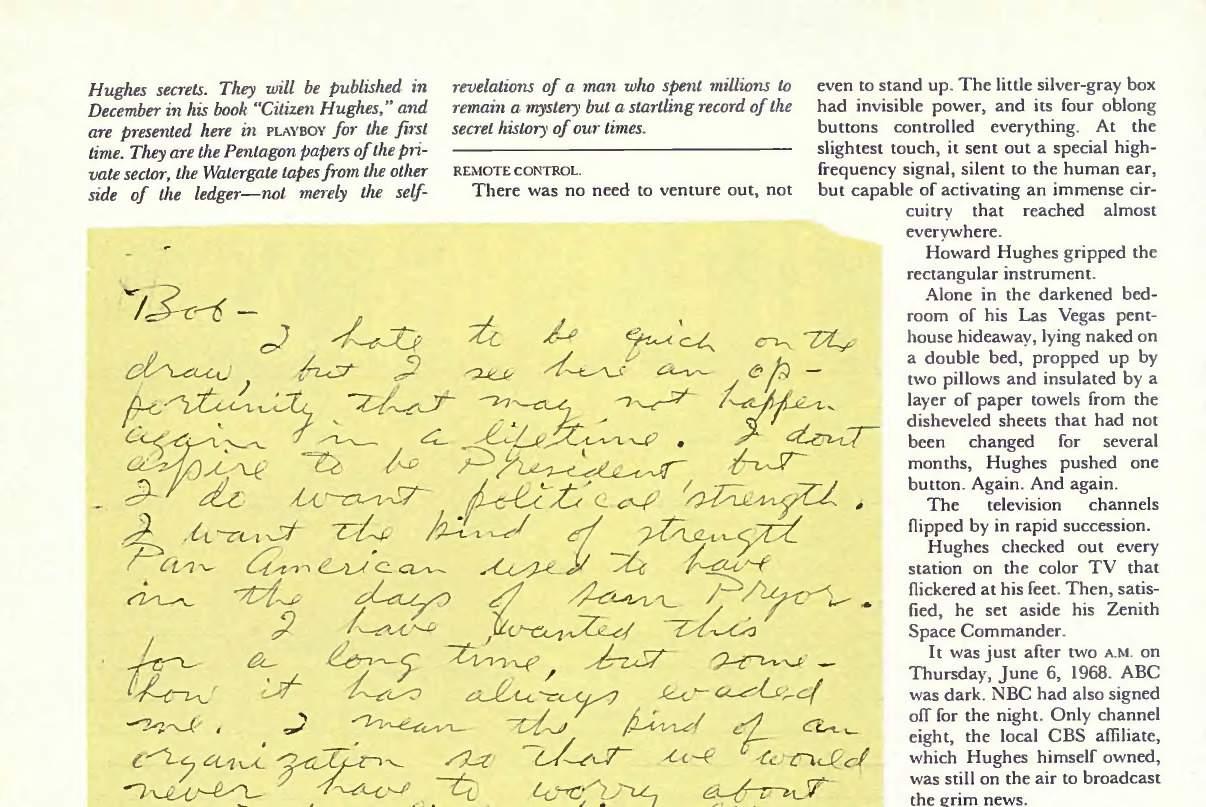 Hughes secrets. They will be published in
December in his book “Citizen Hughes,” and
are presented here in PLAYBOY for the first
time. They are the Pentagon papers of the pri-
vate sector, the Watergate tapes from the other
side of the ledger—not merely the self-
revelations of a man who spent millions to
remain a mystery but a startling record of the
secret history of our times.
REMOTE CONTROL.
There was no need to venture out, not
even to stand up. The little silver-gray box
had invisible power, and its four oblong
buttons controlled everything. At the
slightest touch, it sent out a special high-
frequency signal, silent to the human ear,
but capable of activating an immense cir-
cuitry that reached almost
everywhere.
Howard Hughes gripped the
rectangular instrument.
Alone in the darkened bed-
room of his Las Vegas pent-
house hideaway, lying naked on
a double bed, propped up by
two pillows and insulated by a
layer of paper towels from the
disheveled sheets that had not
been changed for several
months, Hughes pushed one
button. Again. And again.
The television channels
flipped by in rapid succession.
Hughes checked out every
station on the color TV that
flickered at his feet. Then, satis-
fied, he set aside his Zenith
Space Commander.
It was just after two A.M. on
Thursday, June 6, 1968. ABC
was dark. NBC had also signed
off for the night. Only channel
eight, the local CBS affiliate,
which Hughes himself owned,
was still on the air to broadcast
the grim news.
Bob-
I hate to be quick on the
draw, but I see here an op-
portunity that may not happen
again in a lifetime. I dont
aspire to be President, but
I do want political strength.
I want the kind of strength
Pan American used to have
in the days of Sam Pryor.
I have wanted this
for a long time, but some-
how it has always evaded
me. I mean the kind of an
organization so that we would
never have to worry about